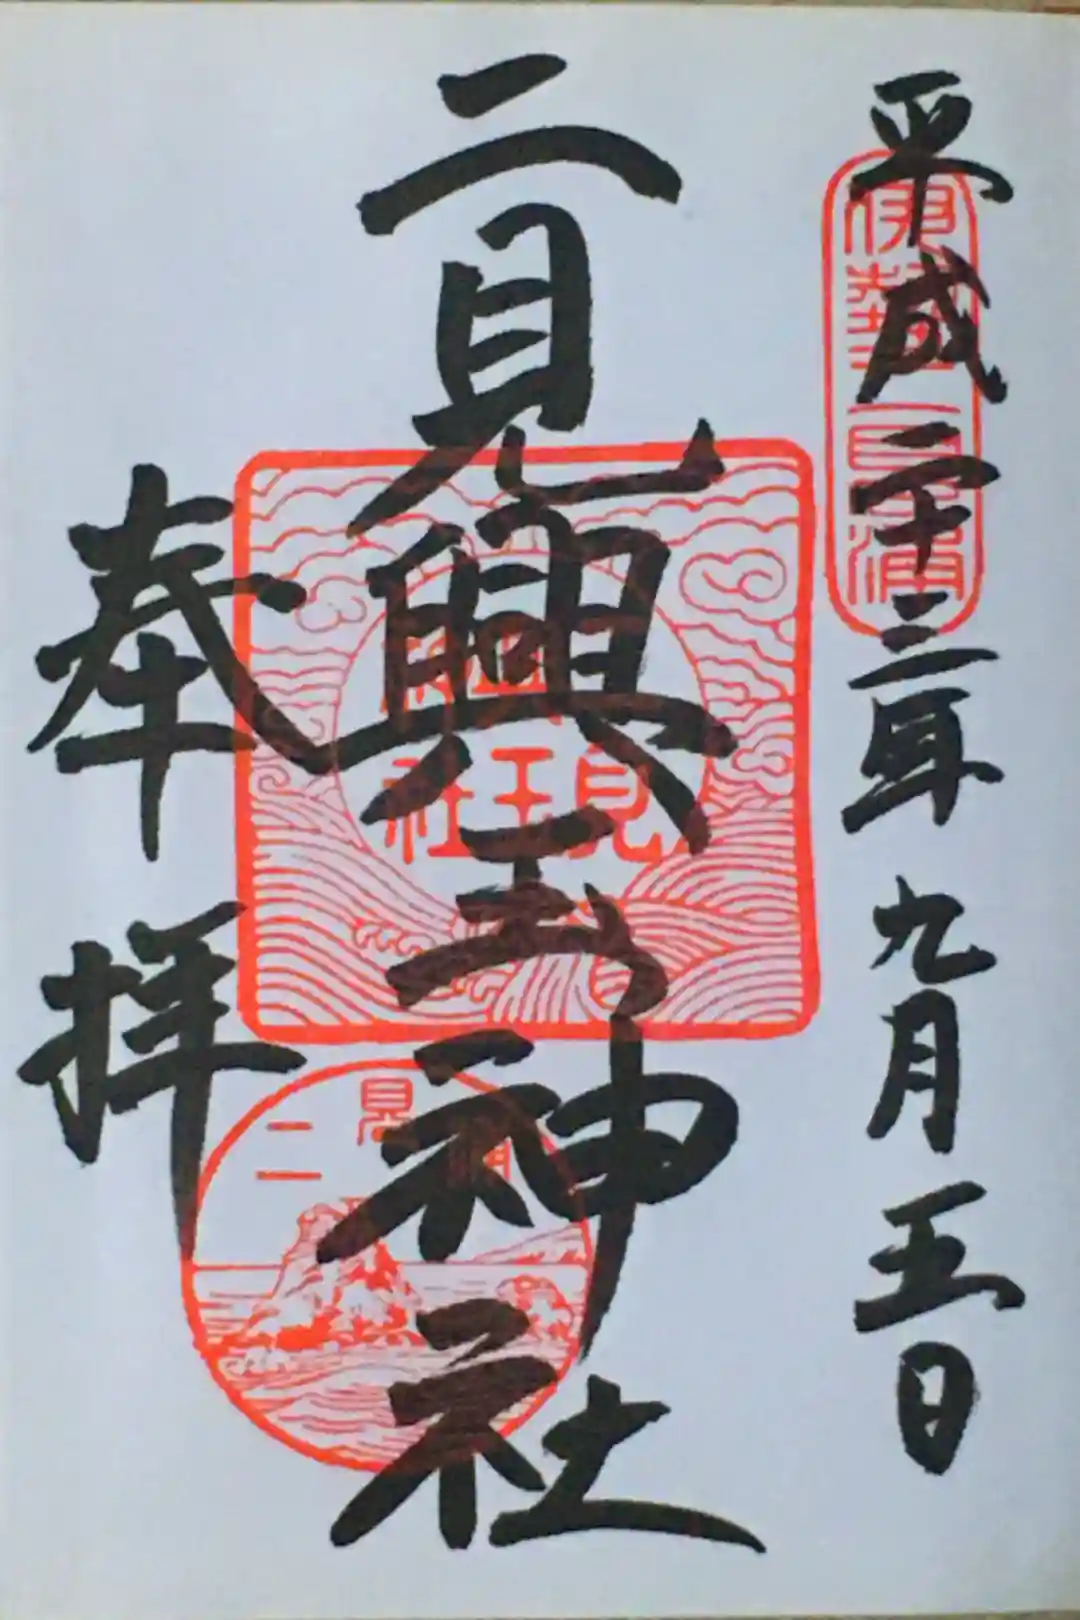 平成二十三年九月五日
伊勢二見浦
二見興玉神社
二見
興玉
神社
二見浦
奉拝